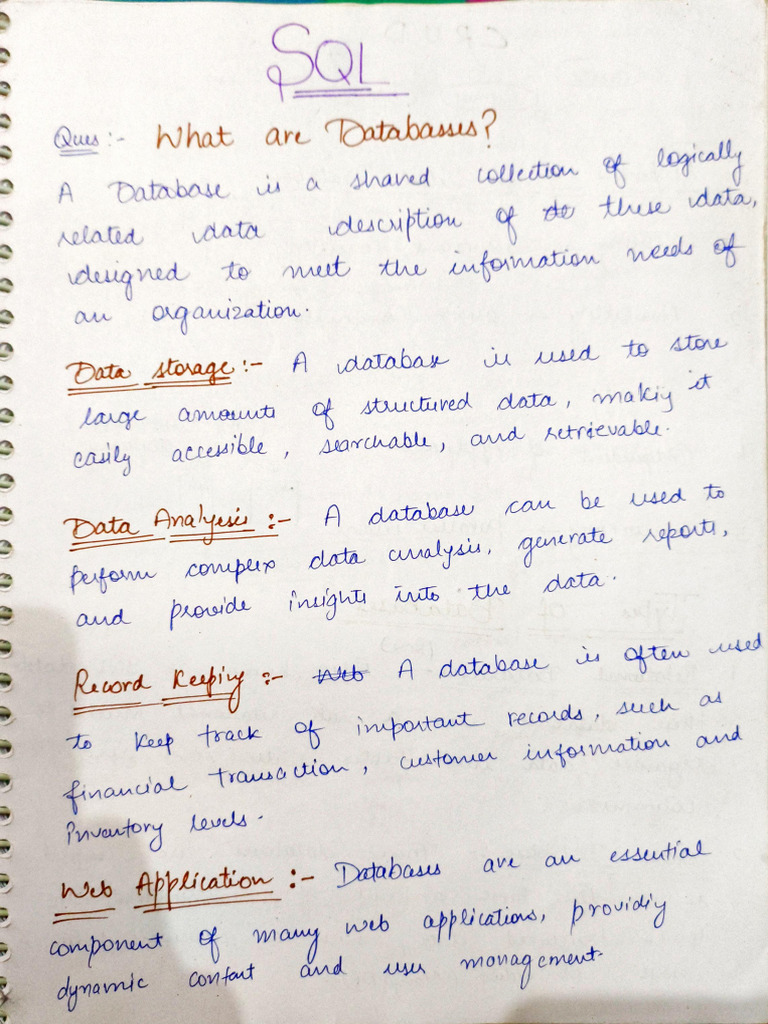 SQL
Ques :- What are Databasses?
A Database is a shared collection of logically
related data description of de these data,
designed to meet the information needs of
an organization.
Data storage :- A database is used to store
large amounts of structured data, making it
easily accessible, searchable, and retrievable.
Data Analysis :- A database can be used to
perform complex data analysis, generate reports,
and provide insights into the data.
Record Keeping :- Web A database is often used
to keep track of important records, such as
financial transaction, customer information and
inventory levels.
Web Application :- Databases are an essential
component of many web applications, providing
dynamic content and user management.